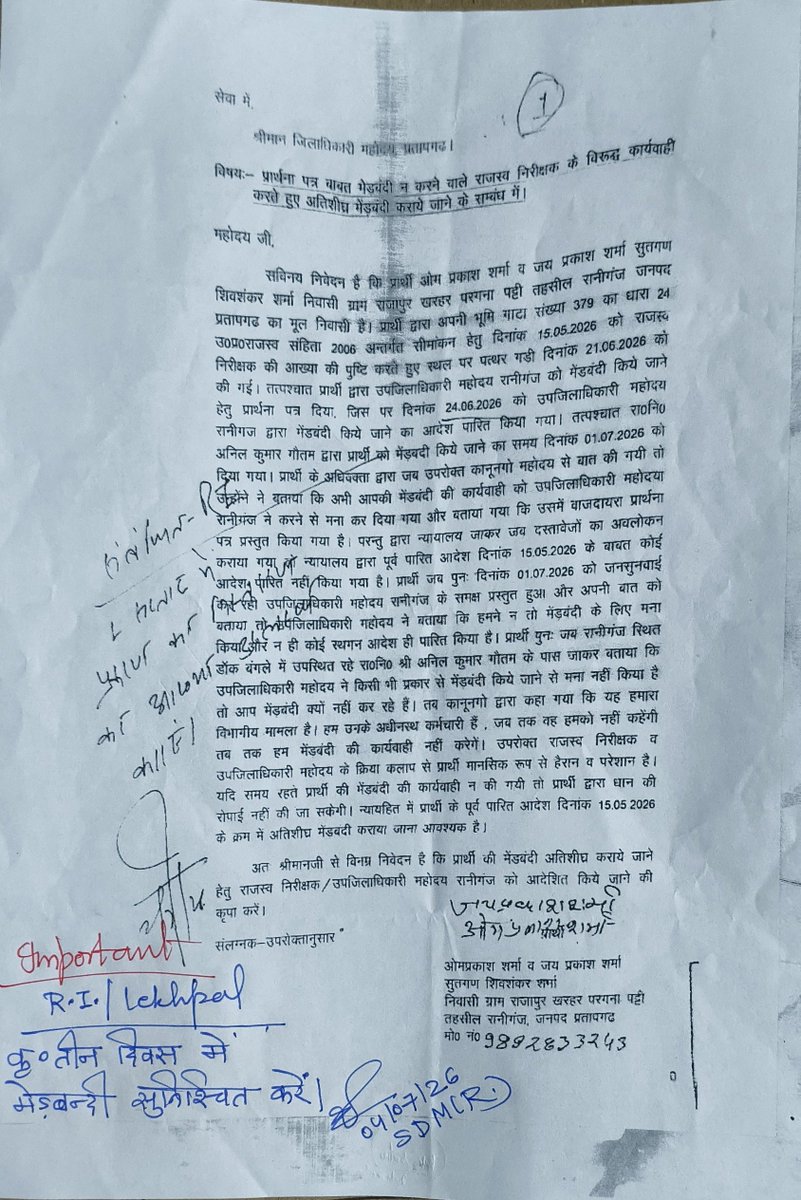 1
सेवा में,
श्रीमान जिलाधिकारी महोदय, प्रतापगढ।
विषयः- प्रार्थना पत्र बाबत मेड़बंदी न करने वाले राजस्व निरीक्षक के विरूद्ध कार्यवाही
करते हुए अतिशीघ्र मेंड़बंदी कराये जाने के सम्बंध में।
महोदय जी,
सविनय निवेदन है कि प्रार्थी ओम प्रकाश शर्मा व जय प्रकाश शर्मा सुतगण
शिवशंकर शर्मा निवासी ग्राम राजापुर खरहर परगना पट्टी तहसील रानीगंज जनपद
प्रतापगढ का मूल निवासी है। प्रार्थी द्वारा अपनी भूमि गाटा संख्या 379 का धारा 24
उ0प्र0राजस्व संहिता 2006 अन्तर्गत सीमांकन हेतु दिनांक 15.05.2026 को राजस्व
निरीक्षक की आख्या की पुष्टि करते हुए स्थल पर पत्थर गडी दिनांक 21.06.2026 को
की गई। तत्पश्चात प्रार्थी द्वारा उपजिलाधिकारी महोदय रानीगंज को मेंडबंदी किये जाने
हेतु प्रार्थना पत्र दिया, जिस पर दिनांक 24.06.2026 को उपजिलाधिकारी महोदय
रानीगज द्वारा मेंडबंदी किये जाने का आदेश पारित किया गया। तत्पश्चात रा0नि0
अनिल कुमार गौतम द्वारा प्रार्थी को मेंड़बदी किये जाने का समय दिनांक 01.07.2026 को
दिया गया। प्रार्थी के अधिवक्ता द्वारा जब उपरोक्त कानूनगो महोदय से बात की गयी तो
उन्होंने ने बताया कि अभी आपकी मेंडबदी की कार्यवाही को उपजिलाधिकारी महोदया
रानीगंज ने करने से मना कर दिया गया और बताया गया कि उसमें वाजदायरा प्रार्थना
पत्र प्रस्तुत किया गया है। परन्तु द्वारा न्यायालय जाकर जब दस्तावेजों का अवलोकन
कराया गया तो न्यायालय द्वारा पूर्व पारित आदेश दिनांक 15.05.2026 के बाबत कोई
आदेश पारित नहीं किया गया है। प्रार्थी जब पुनः दिनांक 01.07.2026 को जनसुनवाई
कर रही उपजिलाधिकारी महोदय रानीगंज के समक्ष प्रस्तुत हुआ और अपनी बात को
बताया तो उपजिलाधिकारी महोदय ने बताया कि हमने न तो मेंड़बंदी के लिए मना
किया और न ही कोई स्थगन आदेश ही पारित किया है। प्रार्थी पुनः जब रानीगंज स्थित
डॉक बंगले में उपस्थित रहे रा0नि0 श्री अनिल कुमार गौतम के पास जाकर बताया कि
उपजिलाधिकारी महोदय ने किसी भी प्रकार से मेंड़बंदी किये जाने से मना नहीं किया है
तो आप मेंड़बदी क्यों नहीं कर रहे हैं। तब कानूनगो द्वारा कहा गया कि यह हमारा
विभागीय मामला है। हम उनके अधीनस्थ कर्मचारी हैं , जब तक वह हमको नहीं कहेंगी
तब तक हम मेंडबदी की कार्यवाही नहीं करेगें। उपरोक्त राजस्व निरीक्षक व
उपजिलाधिकारी महोदय के क्रिया कलाप से प्रार्थी मानसिक रूप से हैरान व परेशान है।
यदि समय रहते प्रार्थी की मेंडबदी की कार्यवाही न की गयी तो प्रार्थी द्वारा धान की
रोपाई नहीं की जा सकेगी। न्यायहित में प्रार्थी के पूर्व पारित आदेश दिनांक 15.05 2026
के क्रम में अतिशीघ्र मेंडबदी कराया जाना आवश्यक है।
अत श्रीमानजी से विनम्र निवेदन है कि प्रार्थी की मेंडबदी अतिशीघ्र कराये जाने
हेतु राजस्व निरीक्षक/उपजिलाधिकारी महोदय रानीगंज को आदेशित किये जाने की
कृपा करें।
जयप्रकाश शर्मा
ओम प्रकाश शर्मा
प्रार्थी
संलग्नक-उपरोक्तानुसार
ओमप्रकाश शर्मा व जय प्रकाश शर्मा
सुतगण शिवशंकर शर्मा
निवासी ग्राम राजापुर खरहर परगना पट्टी
तहसील रानीगंज, जनपद प्रतापगढ
मो0 नं0 9892833243
1 सप्ताह में
कराएं।
Important
R.I./Lekhpal
कृ० तीन दिवस में
मेड़बन्दी सुनिश्चित करें।
04/07/26
SDM(R.)